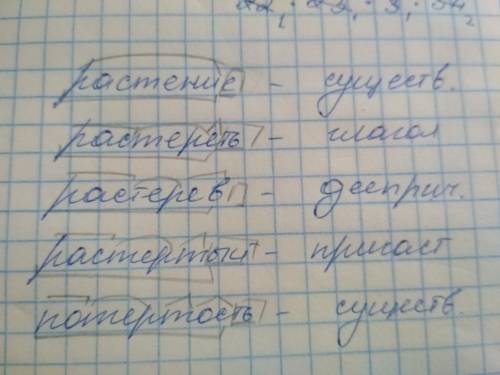 растение – существ.
растереть – глагол
растерев – дееприч.
растертый – причаст
потертость – существ.